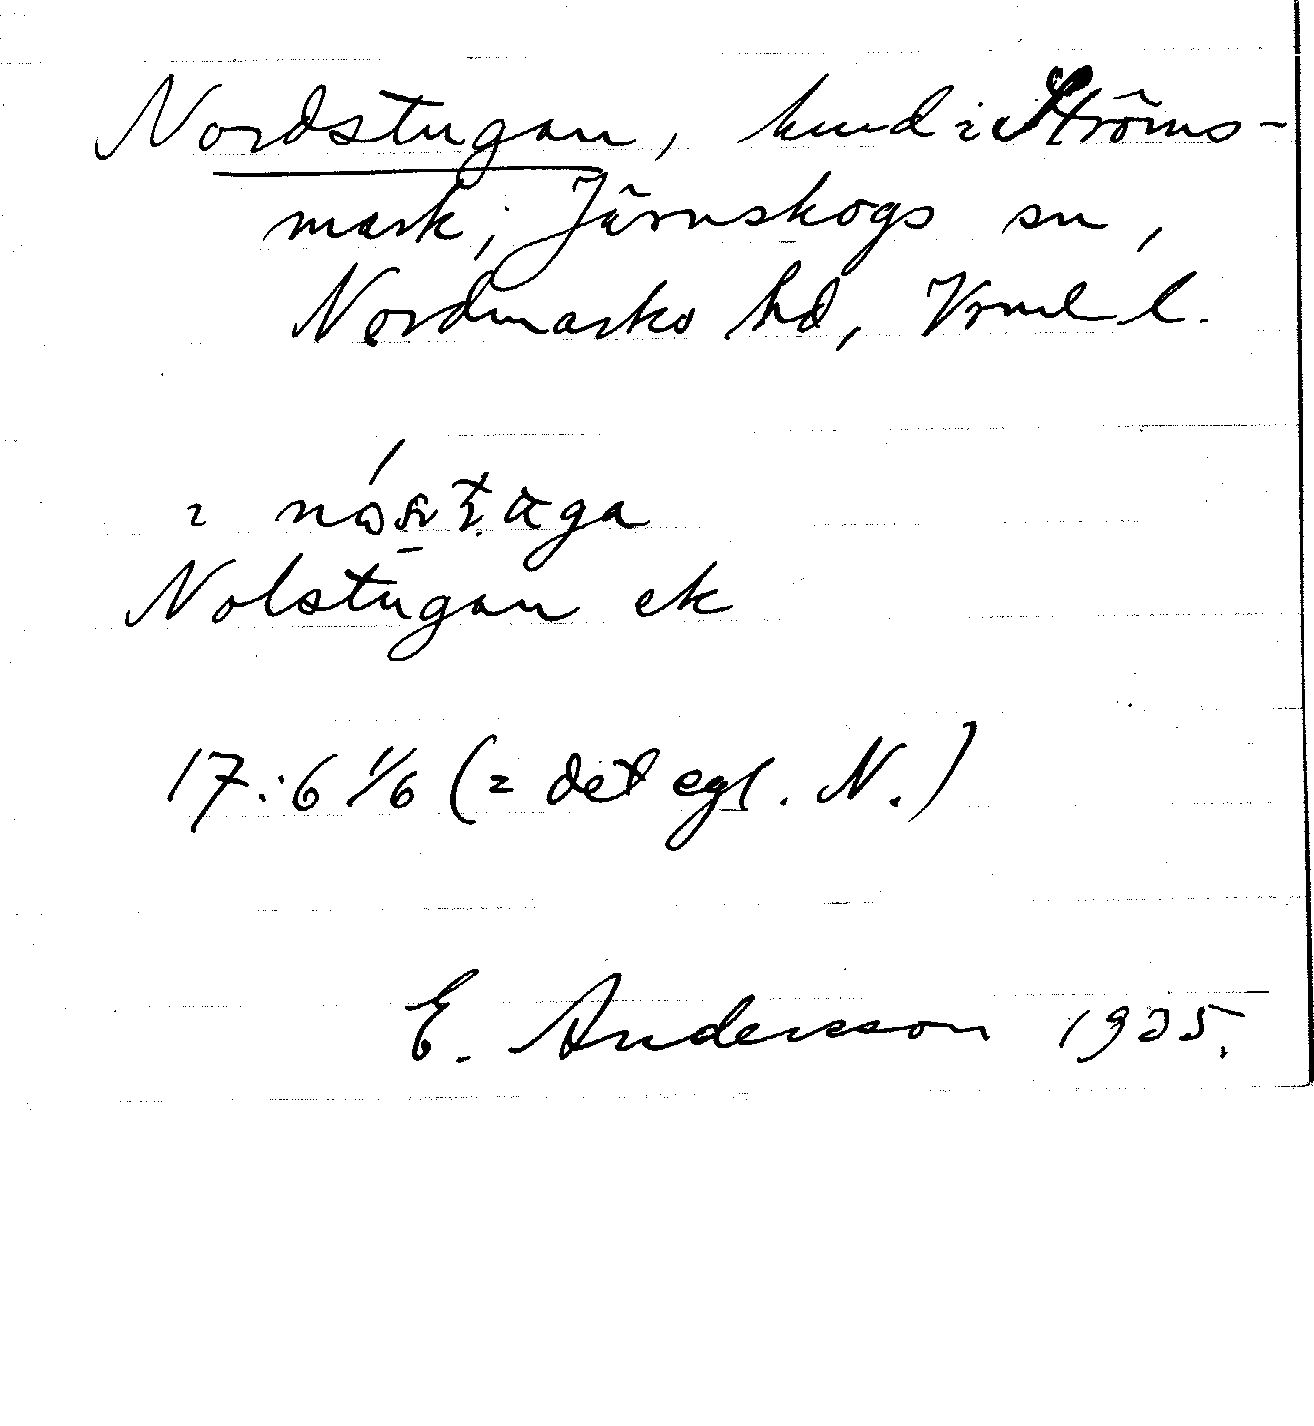 Nordstugan, hmd i Ströms-
mark, Järnskogs sn,
Nordmarks hd, Vrml l.
Nolstugan ek
17:6 1/6 (= det egl. N.)
E. Andersson 1925.